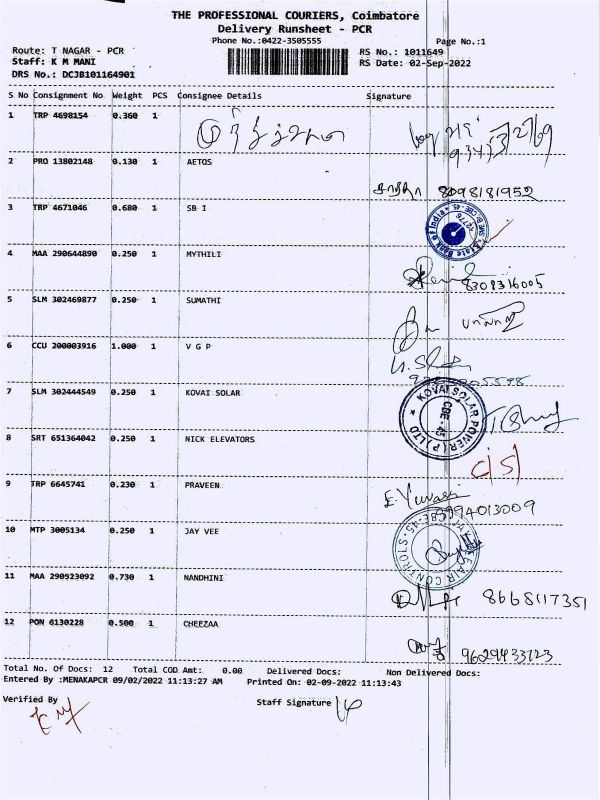 THE PROFESSIONAL COURIERS, Coimbatore
Delivery Runsheet - PCR
Phone No.:0422-3505555 Page No.:1
Route: T NAGAR - PCR RS No.: 1011649
Staff: K M MANI RS Date: 02-Sep-2022
DRS No.: DCJB101164901
S No Consignment No Weight PCS Consignee Details Signature
1 TRP 4698154 0.360 1
2 PRO 13802148 0.130 1 AETOS
8098181952
3 TRP 4671046 0.680 1 SB I
State Bank of India
4 MAA 290644890 0.250 1 MYTHILI
8308316005
5 SLM 302469877 0.250 1 SUMATHI
6 CCU 200003916 1.000 1 V G P
7 SLM 302444549 0.250 1 KOVAI SOLAR
KOVAI SOLAR POWER (P) LTD
CBE - 45
8 SRT 651364042 0.250 1 NICK ELEVATORS
C/S
9 TRP 6645741 0.230 1 PRAVEEN
E. Yuvasri
9994013009
10 MTP 3005134 0.250 1 JAY VEE
11 MAA 290523092 0.730 1 NANDHINI
8668117351
12 PON 6130228 0.500 1 CHEEZAA
9629433723
Total No. Of Docs: 12 Total COD Amt: 0.00 Delivered Docs: Non Delivered Docs:
Entered By :MENAKAPCR 09/02/2022 11:13:27 AM Printed On: 02-09-2022 11:13:43
Verified By Staff Signature